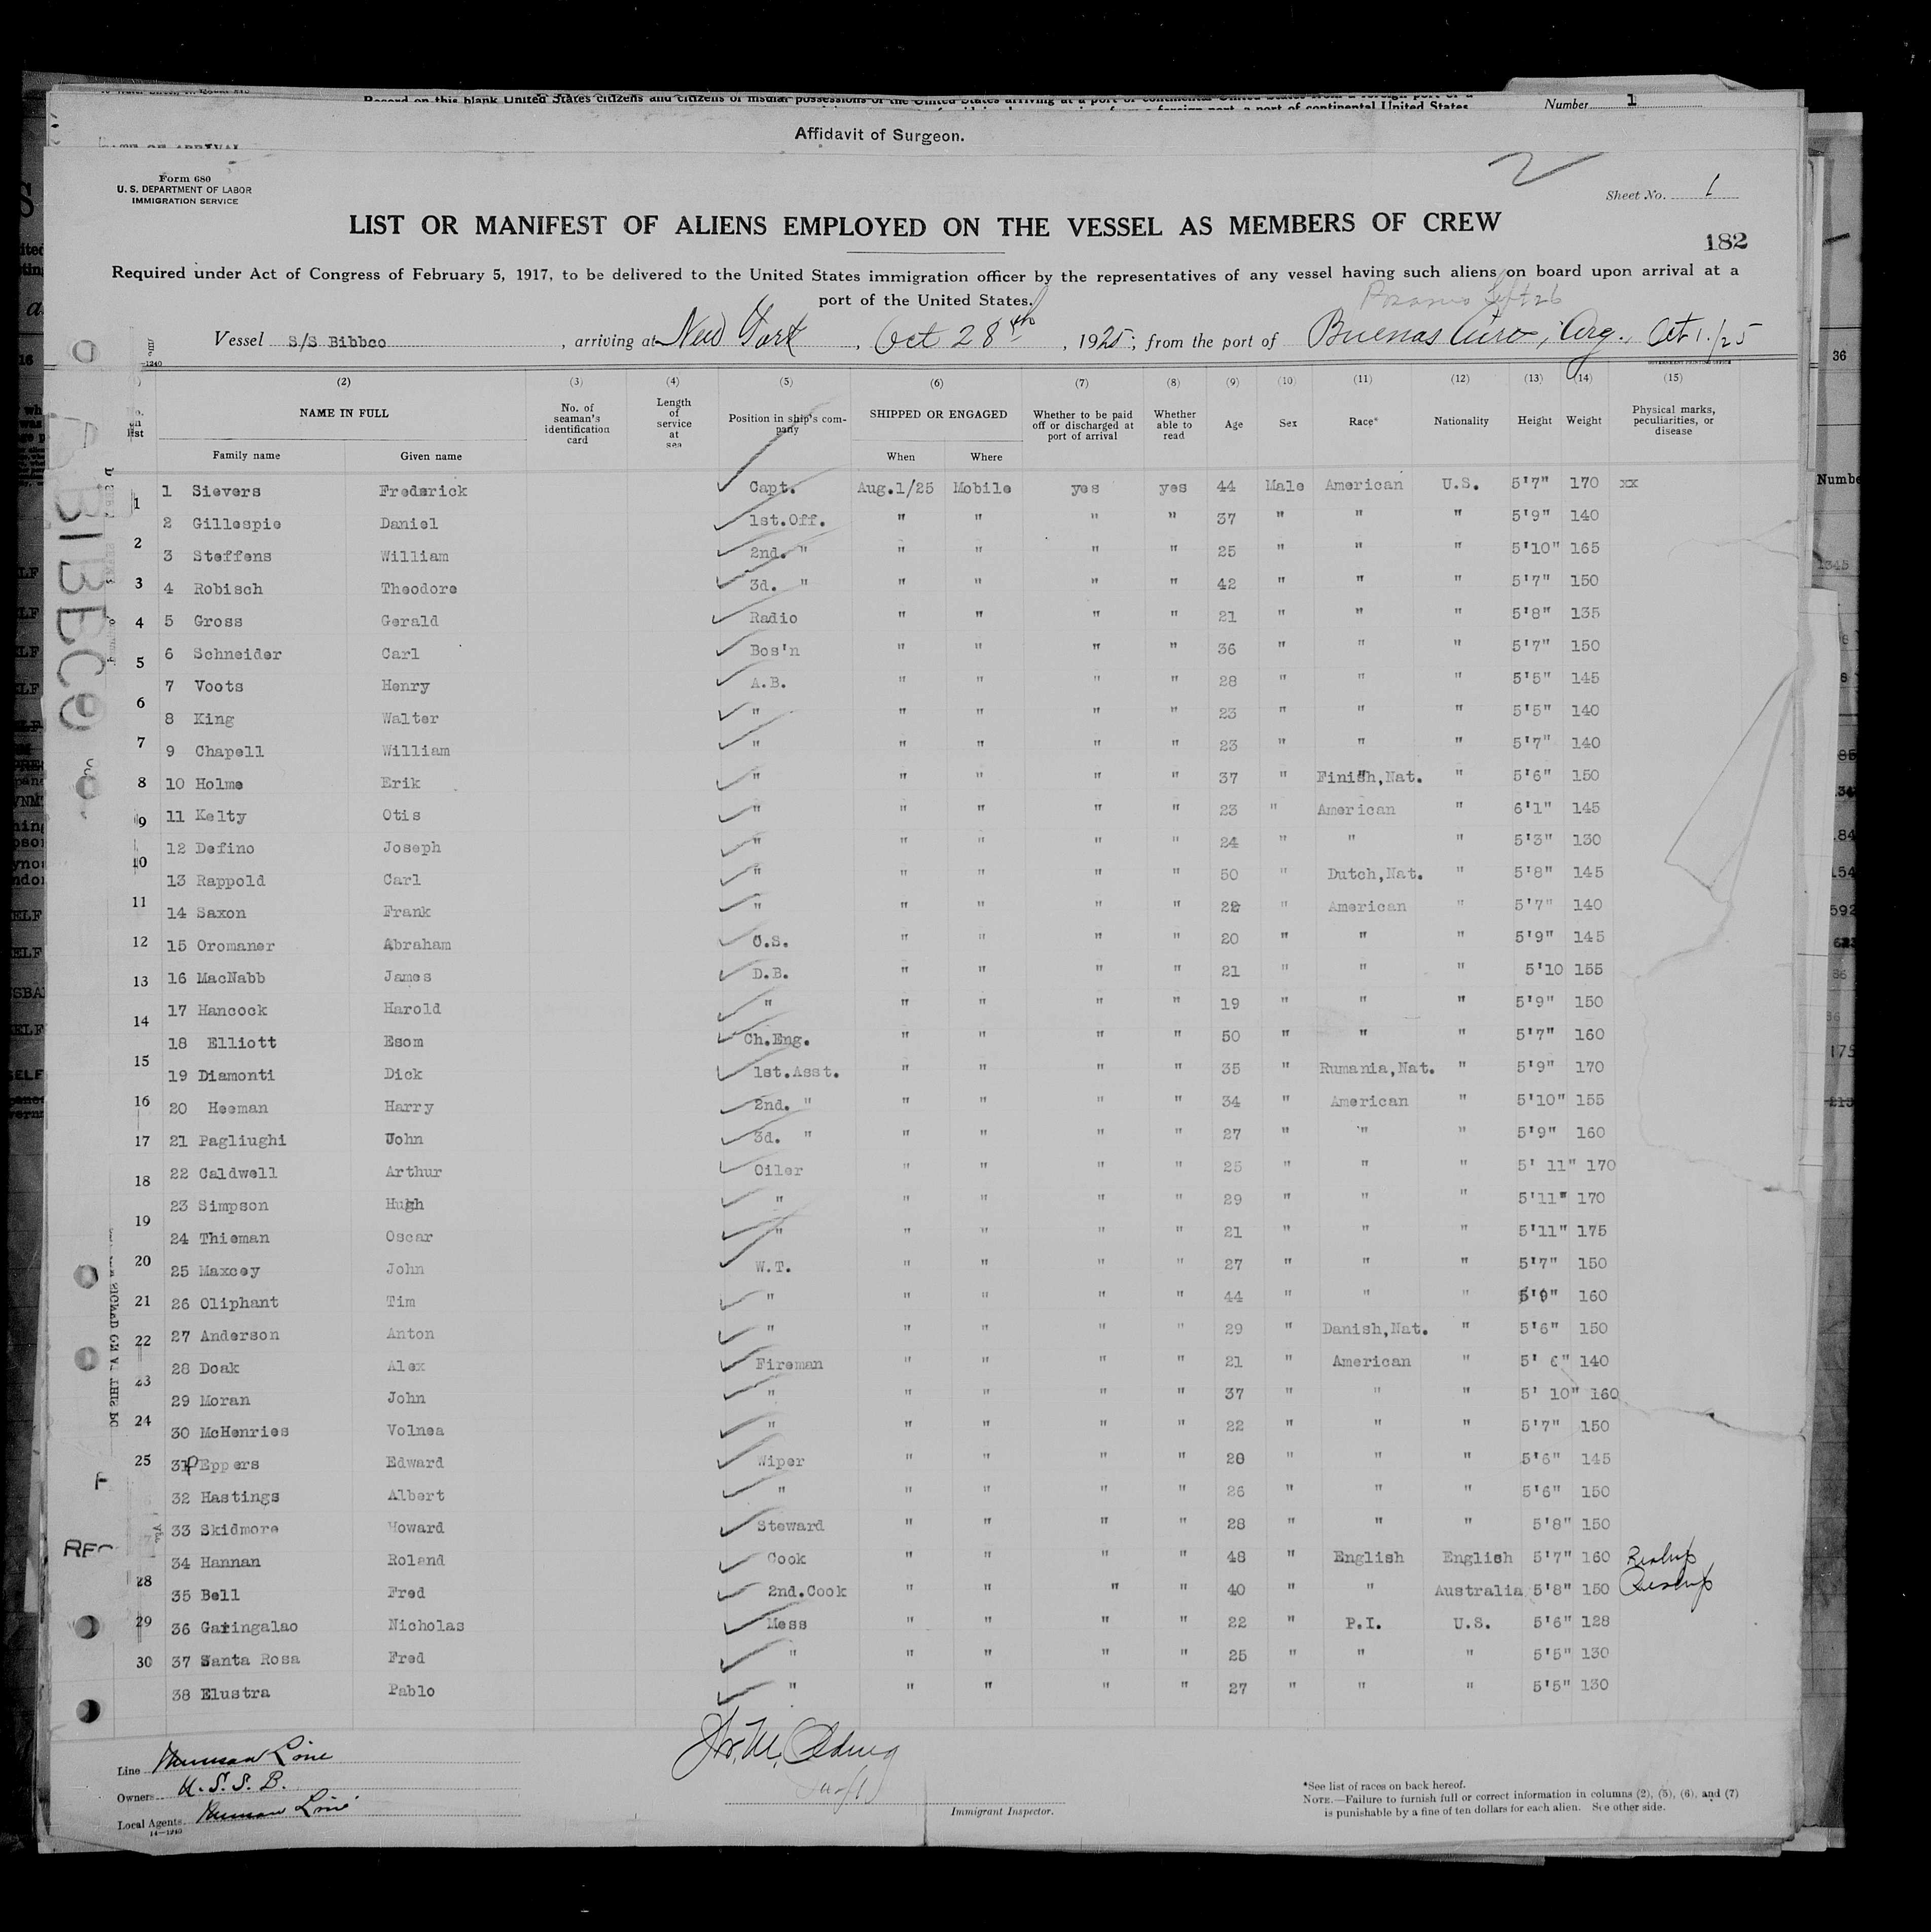 Record on this blank United States citizens and citizens of insular possessions of the United States arriving at a port of continental United States from a foreign port or a
Number 1
Affidavit of Surgeon.
Form 680
U. S. DEPARTMENT OF LABOR
IMMIGRATION SERVICE
Sheet No. 1
LIST OR MANIFEST OF ALIENS EMPLOYED ON THE VESSEL AS MEMBERS OF CREW
182
Required under Act of Congress of February 5, 1917, to be delivered to the United States immigration officer by the representatives of any vessel having such aliens on board upon arrival at a
port of the United States.
Vessel S/S Bibbco, arriving at New York, Oct 28th, 1925; from the port of Buenas Aires, Arg., Oct 1./25
(2) (3) (4) (5) (6) (7) (8) (9) (10) (11) (12) (13) (14) (15)
NAME IN FULL No. of seaman's identification card Length of service at sea Position in ship's company SHIPPED OR ENGAGED Whether to be paid off or discharged at port of arrival Whether able to read Age Sex Race* Nationality Height Weight Physical marks, peculiarities, or disease
Family name Given name When Where
1 Sievers Frederick Capt. Aug.1/25 Mobile yes yes 44 Male American U.S. 5'7" 170 xx
2 Gillespie Daniel 1st.Off. " " " " 37 " " " 5'9" 140
3 Steffens William 2nd. " " " " " 25 " " " 5'10" 165
4 Robisch Theodore 3d. " " " " " 42 " " " 5'7" 150
5 Gross Gerald Radio " " " " 21 " " " 5'8" 135
6 Schneider Carl Bos'n " " " " 36 " " " 5'7" 150
7 Voots Henry A.B. " " " " 28 " " " 5'5" 145
8 King Walter " " " " " 23 " " " 5'5" 140
9 Chapell William " " " " " 23 " " " 5'7" 140
10 Holme Erik " " " " " 37 " Finish,Nat. " 5'6" 150
11 Kelty Otis " " " " " 23 " American " 6'1" 145
12 Defino Joseph " " " " " 24 " " " 5'3" 130
13 Rappold Carl " " " " " 50 " Dutch,Nat. " 5'8" 145
14 Saxon Frank " " " " " 22 " American " 5'7" 140
15 Oromaner Abraham O.S. " " " " 20 " " " 5'9" 145
16 MacNabb James D.B. " " " " 21 " " " 5'10 155
17 Hancock Harold " " " " " 19 " " " 5'9" 150
18 Elliott Esom Ch.Eng. " " " " 50 " " " 5'7" 160
19 Diamonti Dick 1st.Asst. " " " " 35 " Rumania,Nat. " 5'9" 170
20 Heeman Harry 2nd. " " " " " 34 " American " 5'10" 155
21 Pagliughi John 3d. " " " " " 27 " " " 5'9" 160
22 Caldwell Arthur Oiler " " " " 25 " " " 5' 11" 170
23 Simpson Hugh " " " " " 29 " " " 5'11" 170
24 Thieman Oscar " " " " " 21 " " " 5'11" 175
25 Maxcey John W.T. " " " " 27 " " " 5'7" 150
26 Oliphant Tim " " " " " 44 " " " 5'9" 160
27 Anderson Anton " " " " " 29 " Danish,Nat. " 5'6" 150
28 Doak Alex Fireman " " " " 21 " American " 5' 6" 140
29 Moran John " " " " " 37 " " " 5' 10" 160
30 McHenries Volnea " " " " " 22 " " " 5'7" 150
31 Eppers Edward Wiper " " " " 28 " " " 5'6" 145
32 Hastings Albert " " " " " 26 " " " 5'6" 150
33 Skidmore Howard Steward " " " " 28 " " " 5'8" 150
34 Hannan Roland Cook " " " " 48 " English English 5'7" 160
35 Bell Fred 2nd.Cook " " " " 40 " " Australia 5'8" 150
36 Garingalao Nicholas Mess " " " " 22 " P.I. U.S. 5'6" 128
37 Santa Rosa Fred " " " " " 25 " " " 5'5" 130
38 Elustra Pablo " " " " " 27 " " " 5'5" 130
Line Munson Line
Owners U. S. S. B.
Local Agents Munson Line
14—1240
Immigrant Inspector.
*See list of races on back hereof.
NOTE.—Failure to furnish full or correct information in columns (2), (5), (6), and (7)
is punishable by a fine of ten dollars for each alien. See other side.
BIBBCO